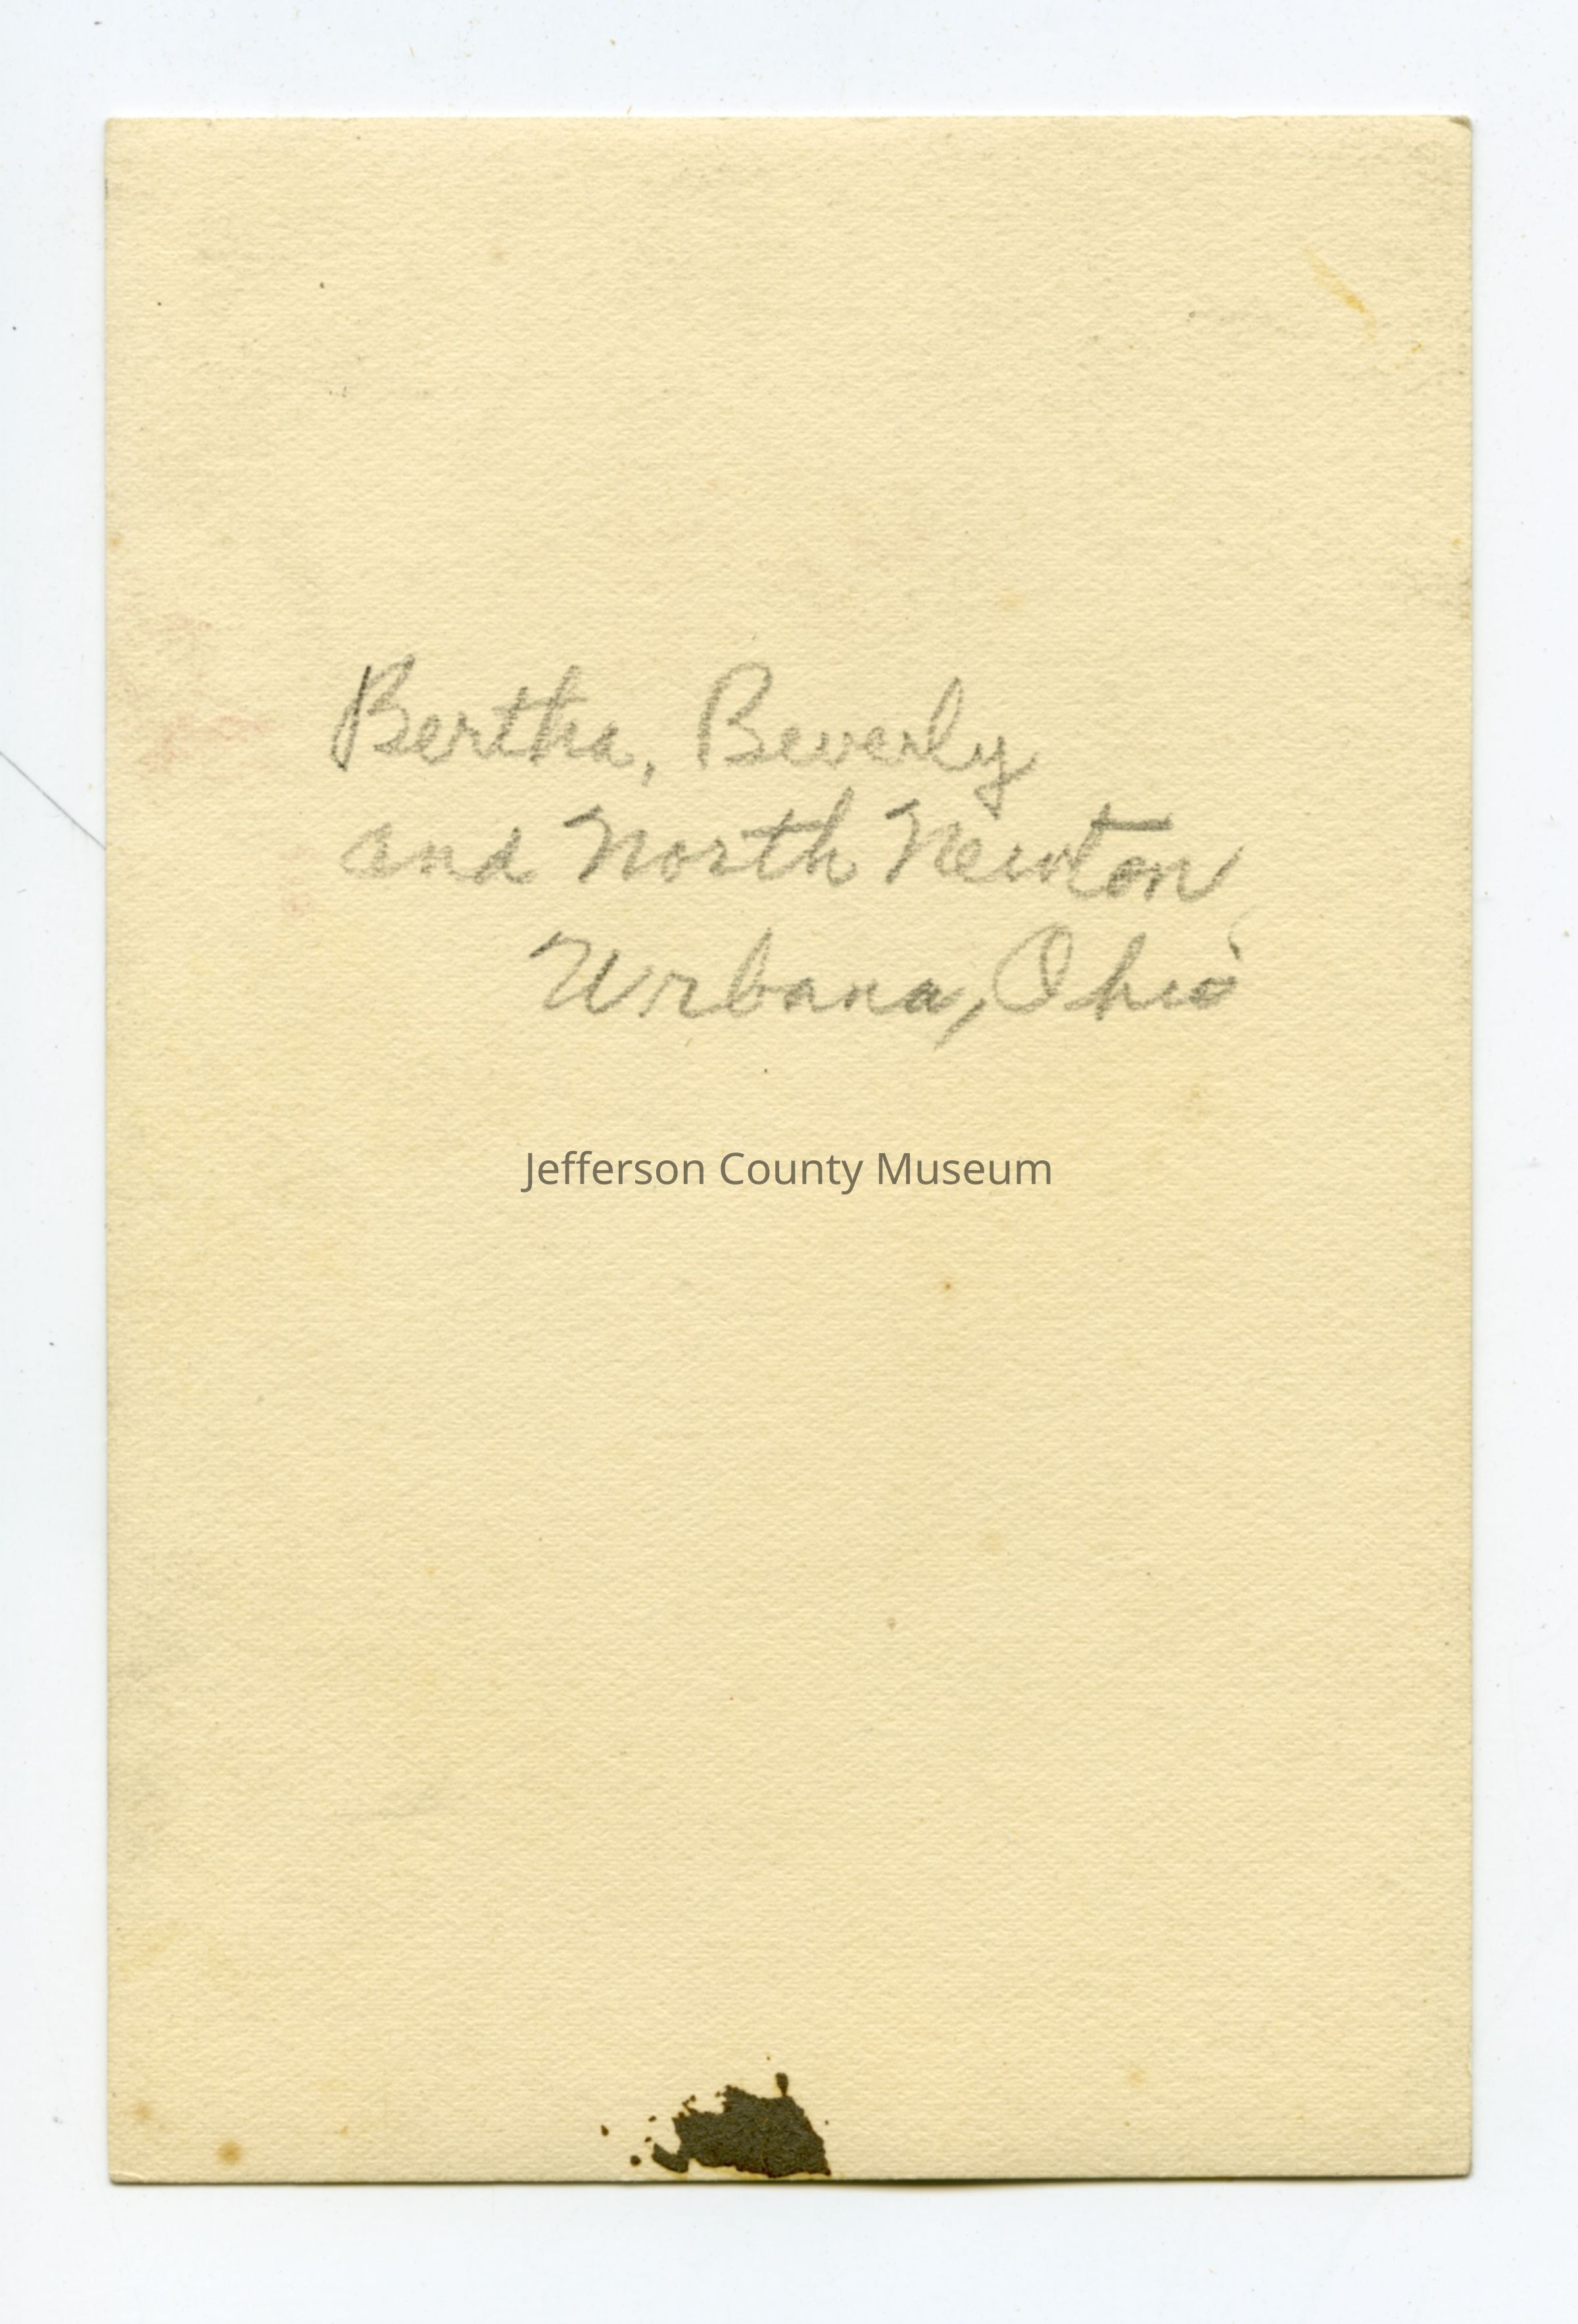 Bertha, Beverly
and North Newton
Urbana, Ohio
Jefferson County Museum